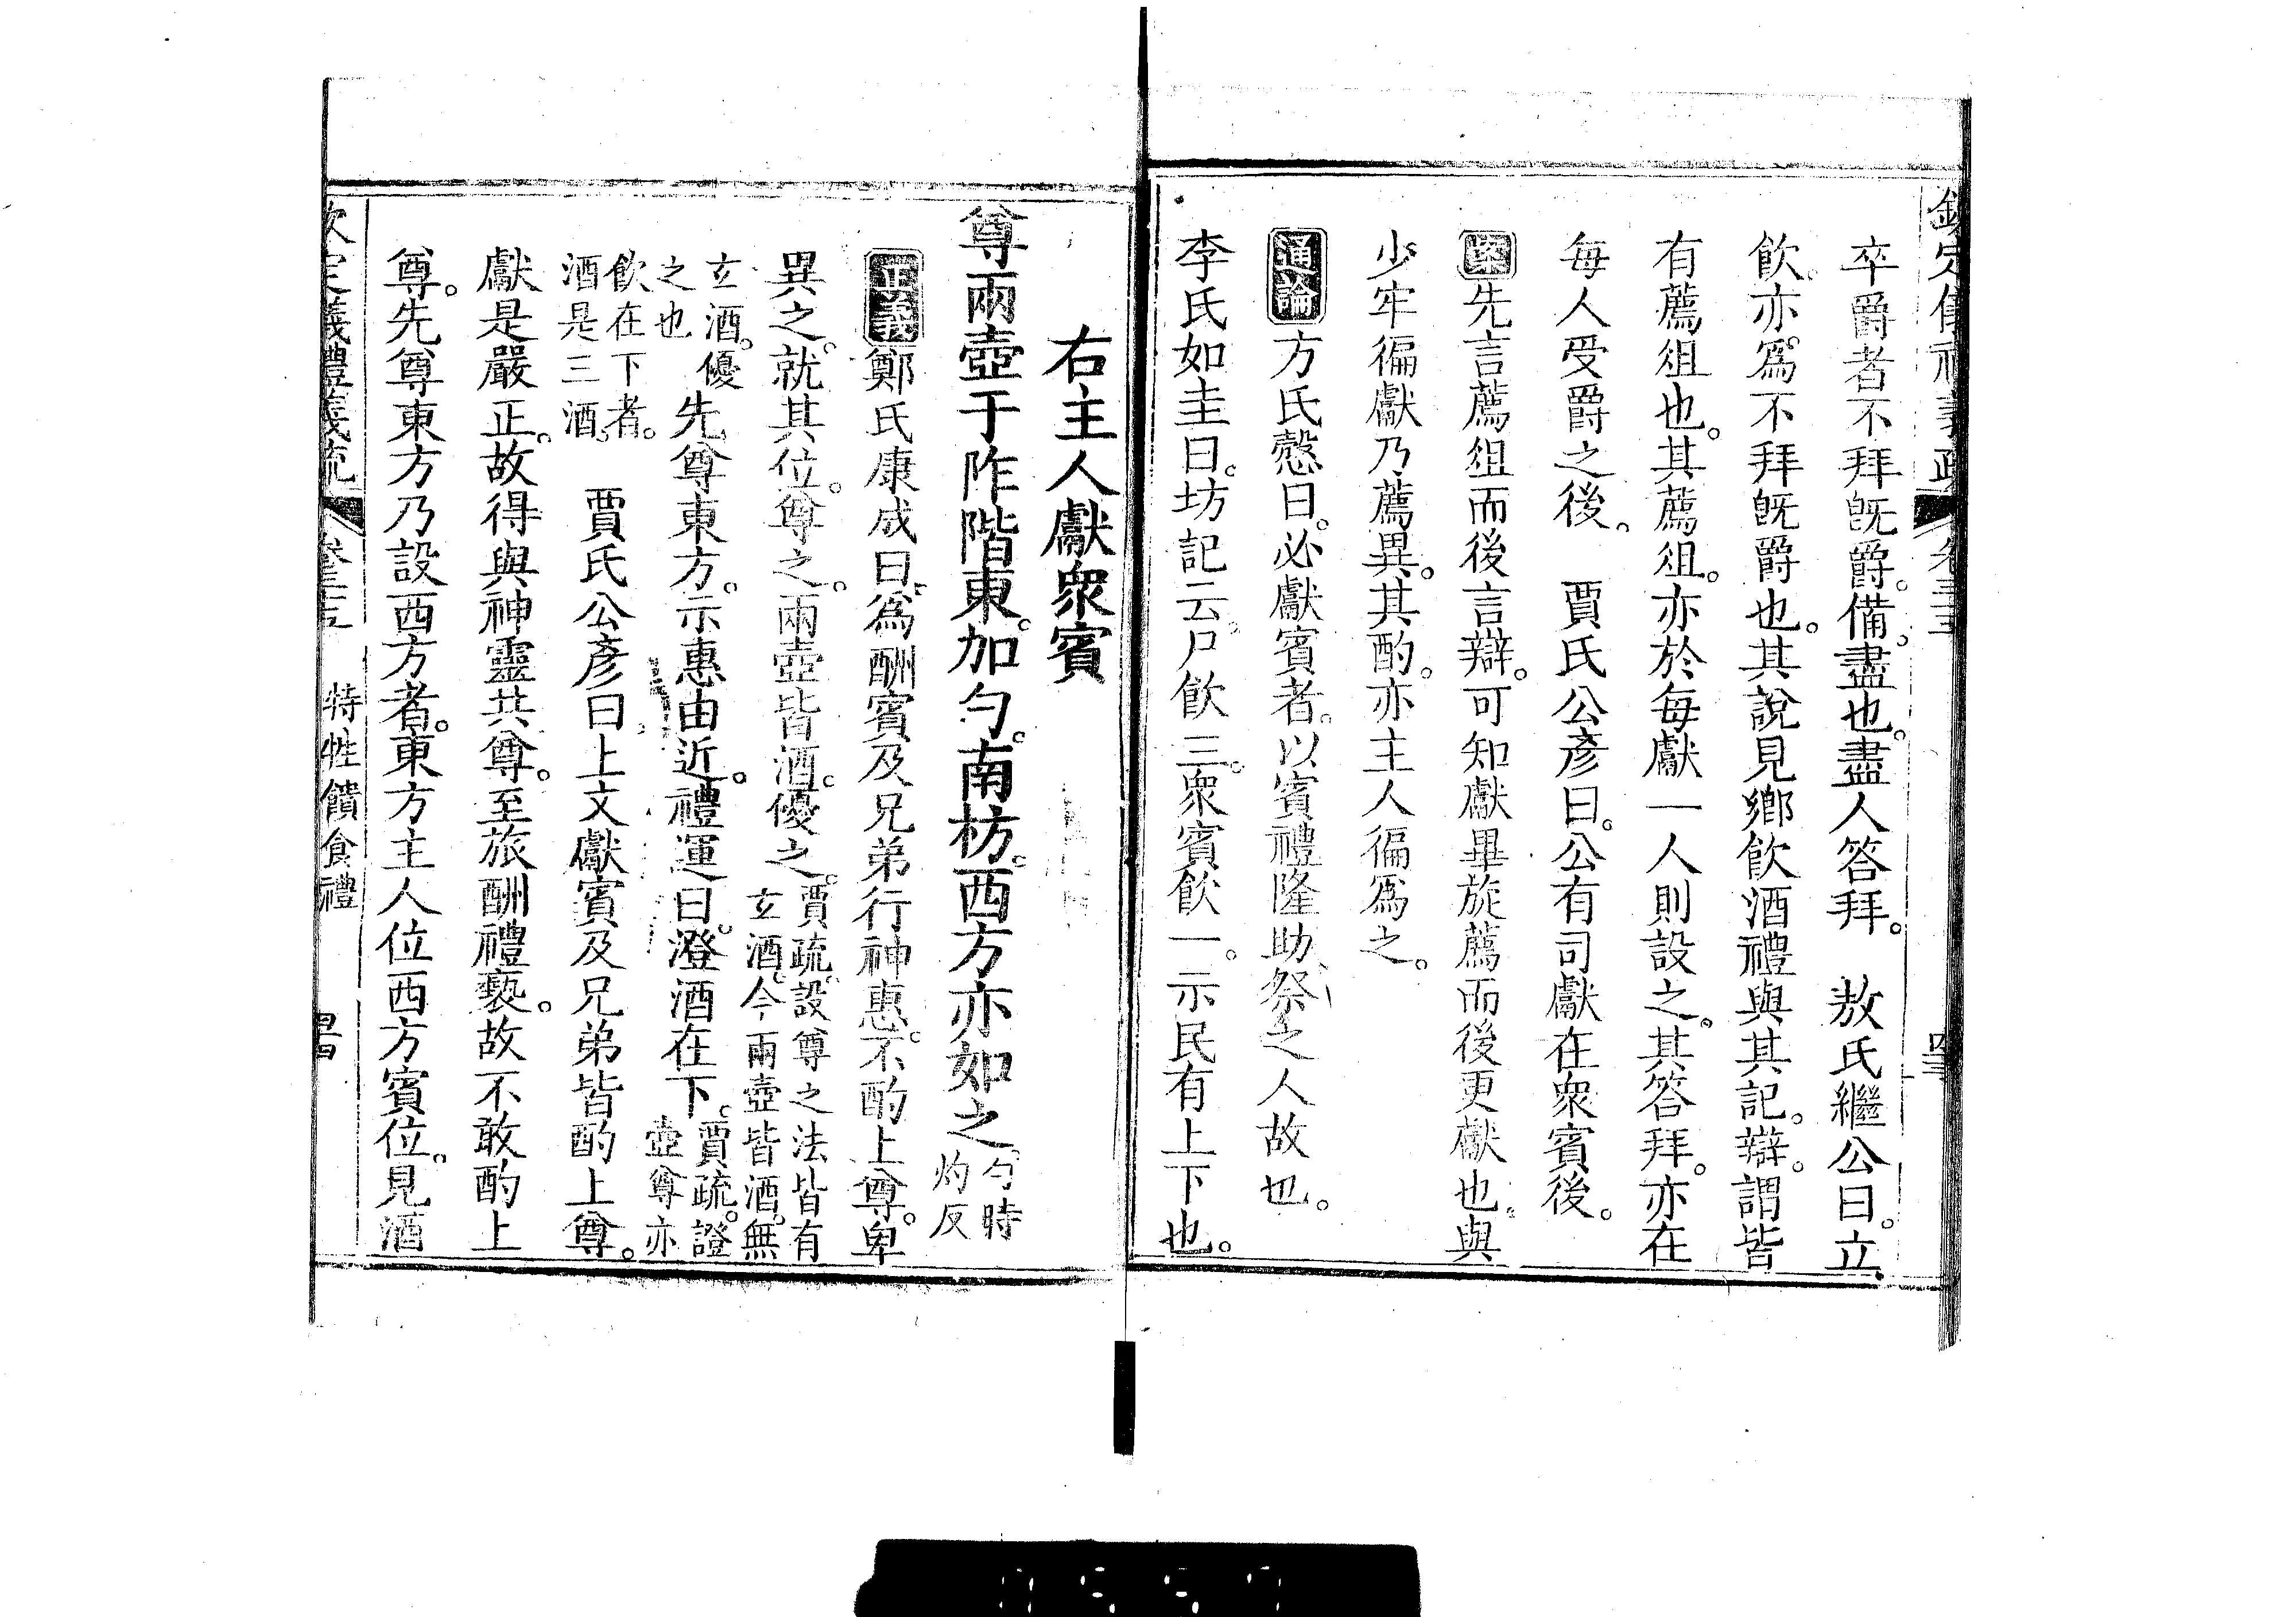 欽定儀禮義疏　卷三十五
卒爵者不拜旣爵。備。盡也。盡人答拜。　敖氏繼公曰。立
飮。亦爲不拜旣爵也。其說見鄉飮酒禮與其記。辯。謂皆
有薦俎也。其薦俎。亦於每獻一人則設之。其答拜。亦在
每人受爵之後。　賈氏公彥曰。公有司獻在衆賓後。
案先言薦俎而後言辯。可知獻畢旅薦而後更獻也。與
少牢徧獻乃薦異。其酌。亦主人徧爲之。
通論方氏慤曰。必獻賓者。以賓禮隆助祭之人故也。
李氏如圭曰。坊記云。尸飮三。衆賓飮一。示民有上下也。
右主人獻衆賓
尊兩壺于阼階東。加勺。南枋。西方亦如之。勺時
灼反
正義鄭氏康成曰。爲酬賓及兄弟行神惠。不酌上尊。卑
異之。就其位。尊之。兩壺皆酒。優之。賈疏。設尊之法皆有
玄酒。今兩壺皆酒。無
玄酒。優
之也
先尊東方。示惠由近。禮運曰。澄酒在下。賈疏。證
壺尊亦
飮在下者。
酒是三酒。
賈氏公彥曰。上文獻賓及兄弟皆酌上尊。
獻是嚴正。故得與神靈共尊。至旅酬禮褻。故不敢酌上
尊。先尊東方乃設西方者。東方主人位西方賓位。見酒
欽定義禮義疏　卷三十五　特牲饋食禮